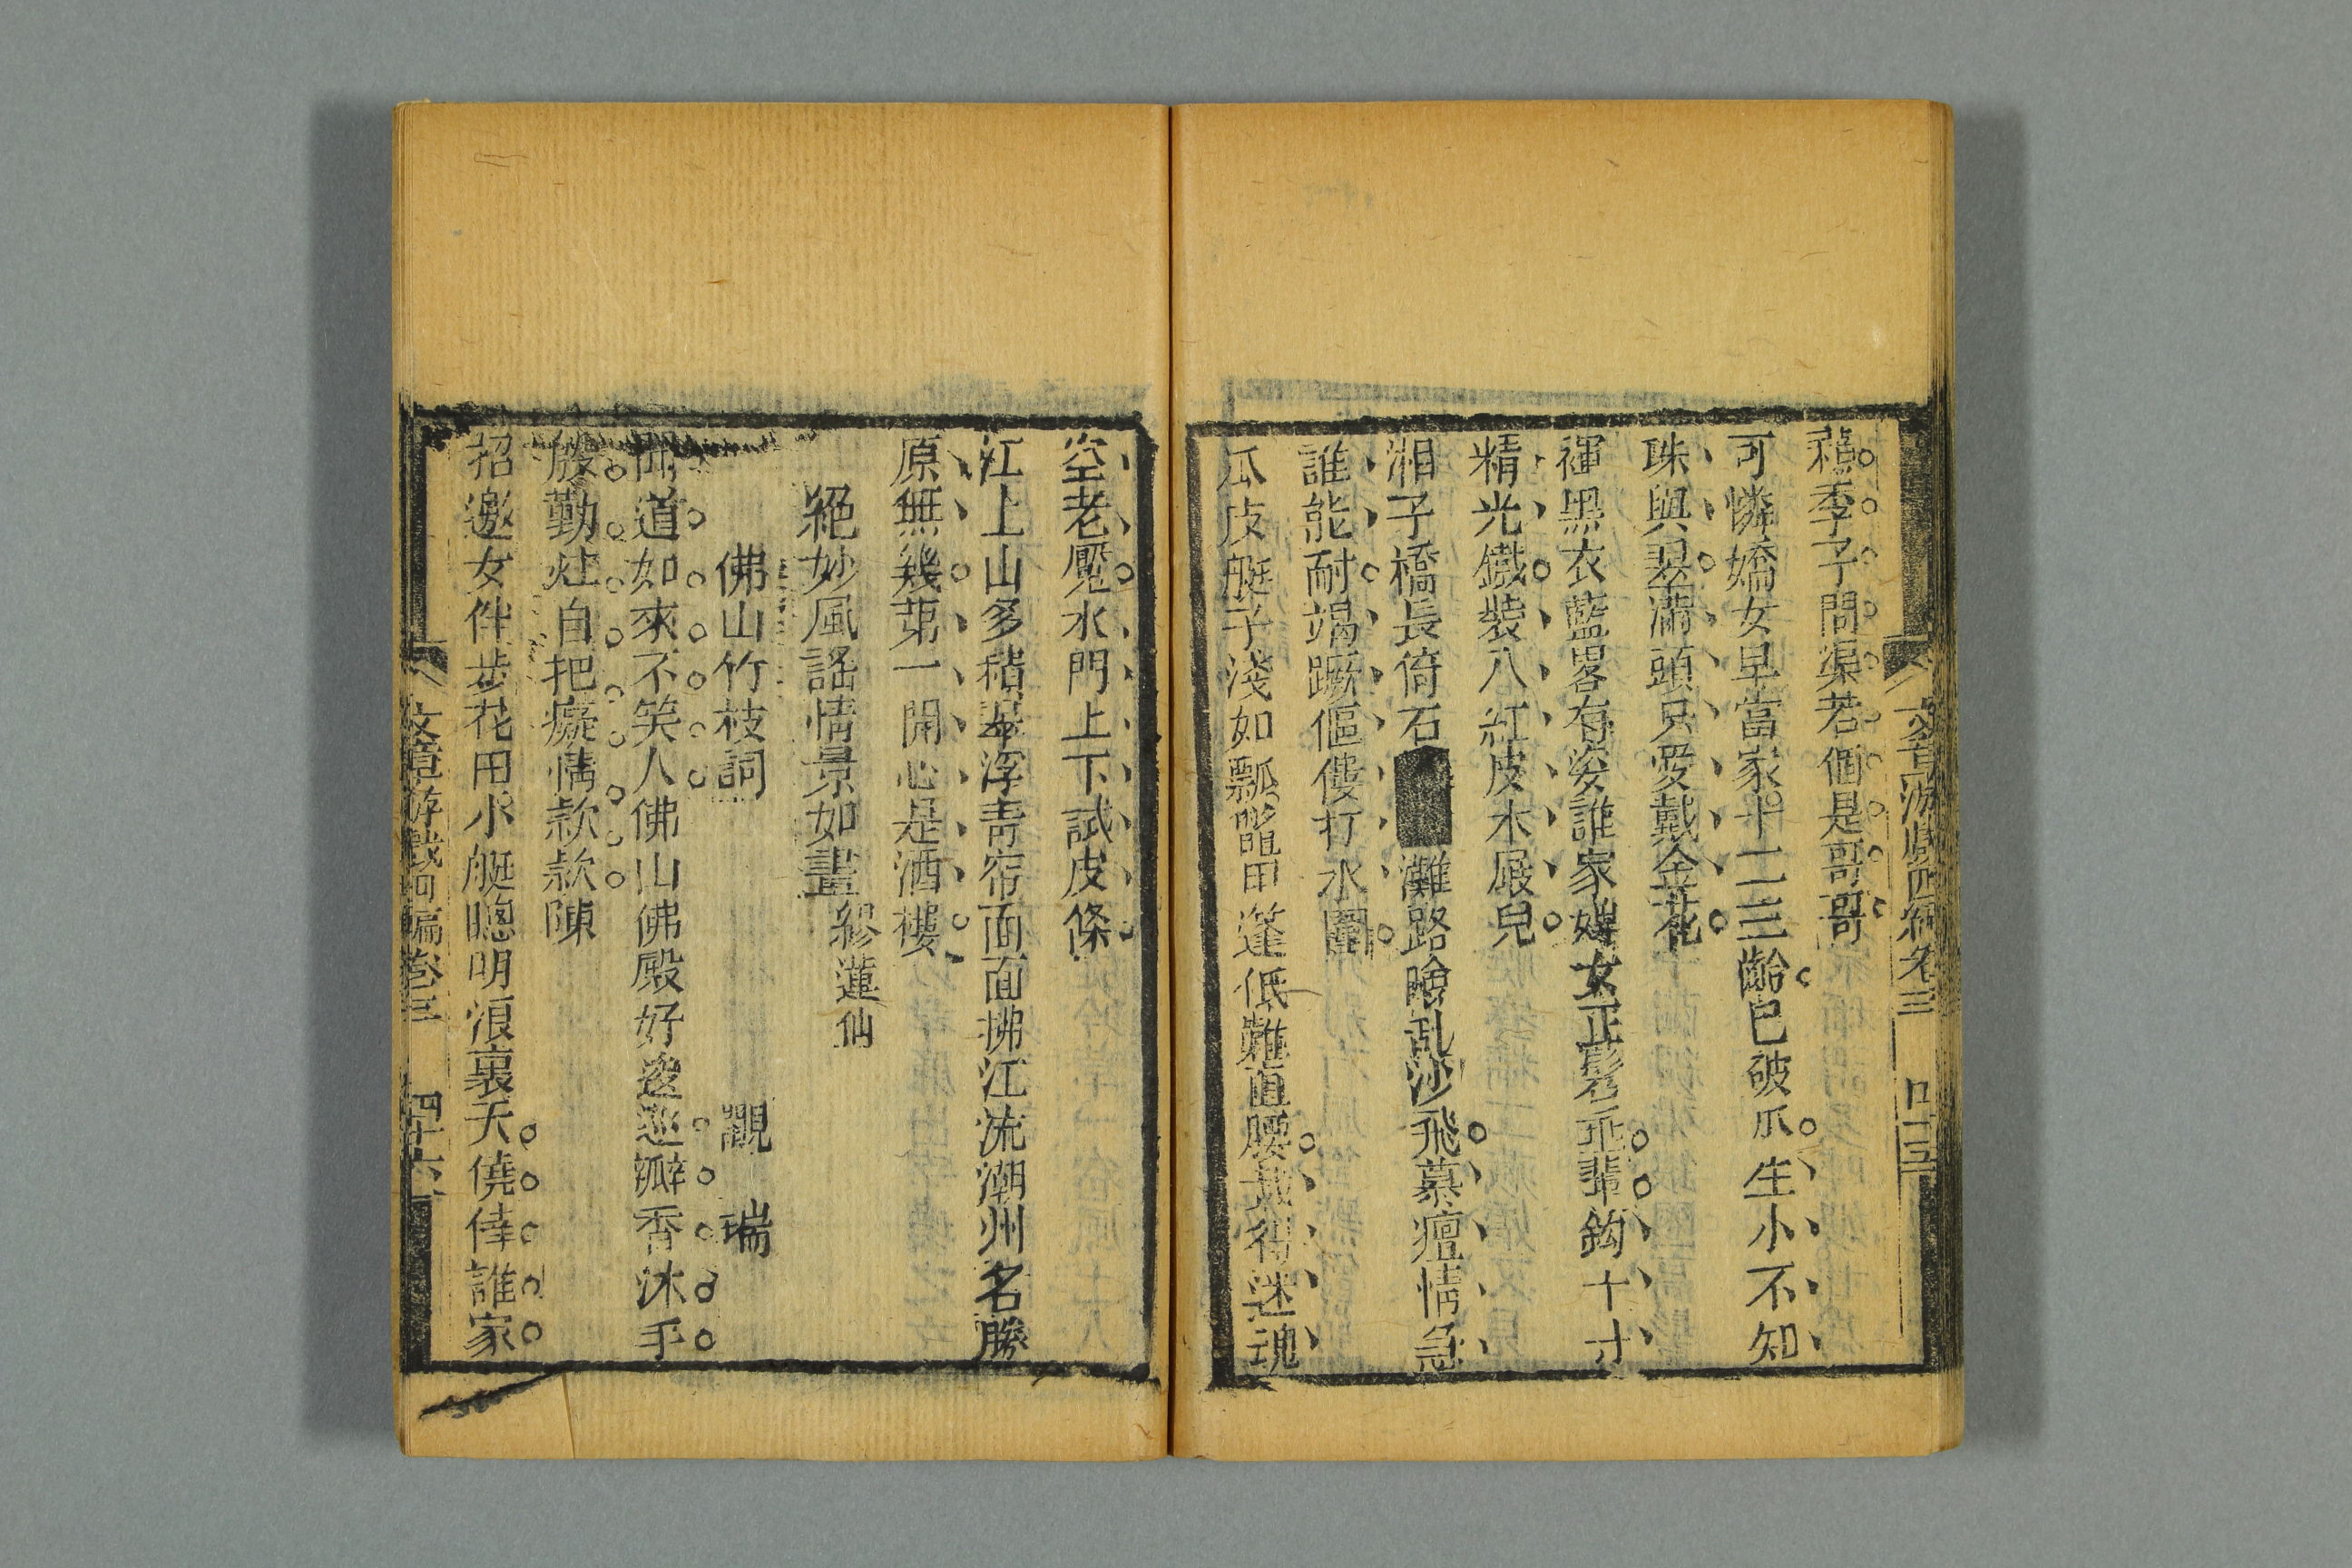 季子問渠若個是哥哥
可憐嬌女早當家十二三齡已破瓜生小不知
珠與翠滿頭只愛戴金花
褌黑衣藍畧有姿誰家婢女正髫鈎十寸
精光鐵裝八紅皮木屐兒
湘子橋長倚石灘路亂沙飛慕情急
誰能耐竭蹶傴僂打水圍
瓜皮艇子淺如瓢篷低難直腰得迷魂
空老魘水門上下試皮條
江上山多浮青帘面面拂江流潮州名勝
原無幾第一開心是酒樓
絕妙風謠情景如畫繆蓮仙
佛山竹枝詞
瑞
聞道如來不笑人佛山佛殿好逡巡瓣香沐手
殷勤炷自把癡情款款陳
招邀女伴步花田小艇聰明浪裏天僥倖誰家
文章游戲四編卷三
文章游戲四編卷三
四十六